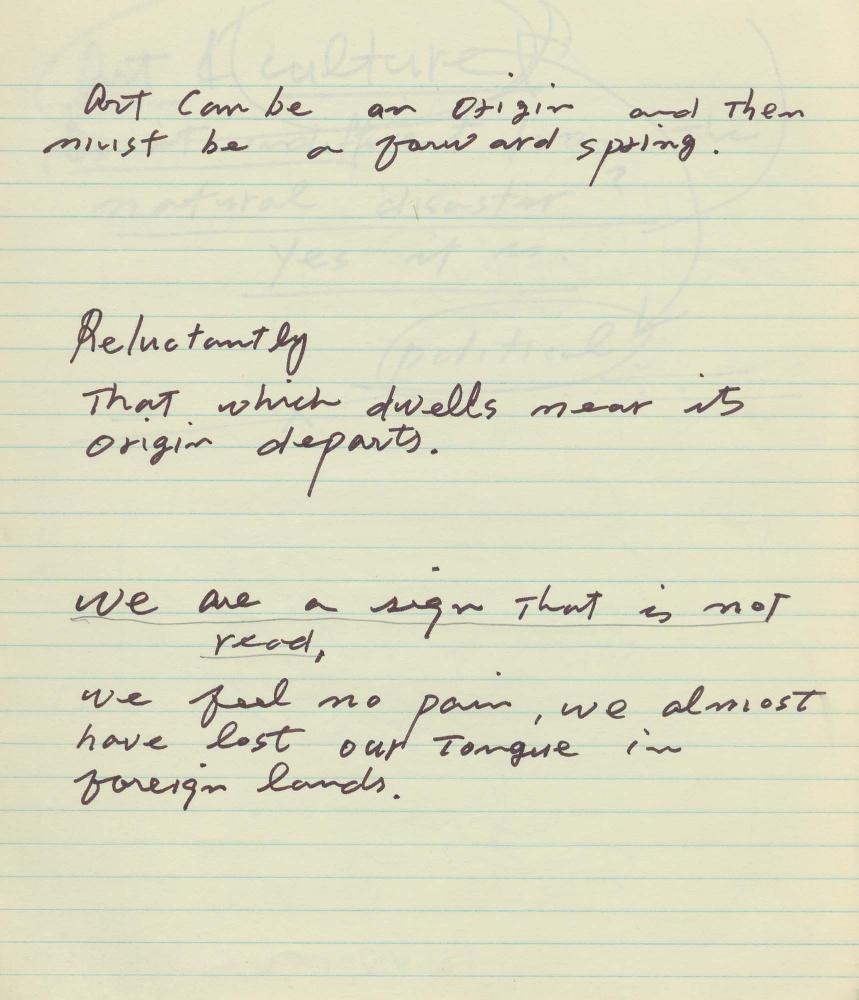 Art Can be an Origin and Then
must be a forward spring.
Reluctantly
That which dwells near its
origin departs.
we are a sign that is not
read,
we feel no pain, we almost
have lost our Tongue in
foreign lands.
Art & (culture)
natural disaster?
Yes it is.
(political)